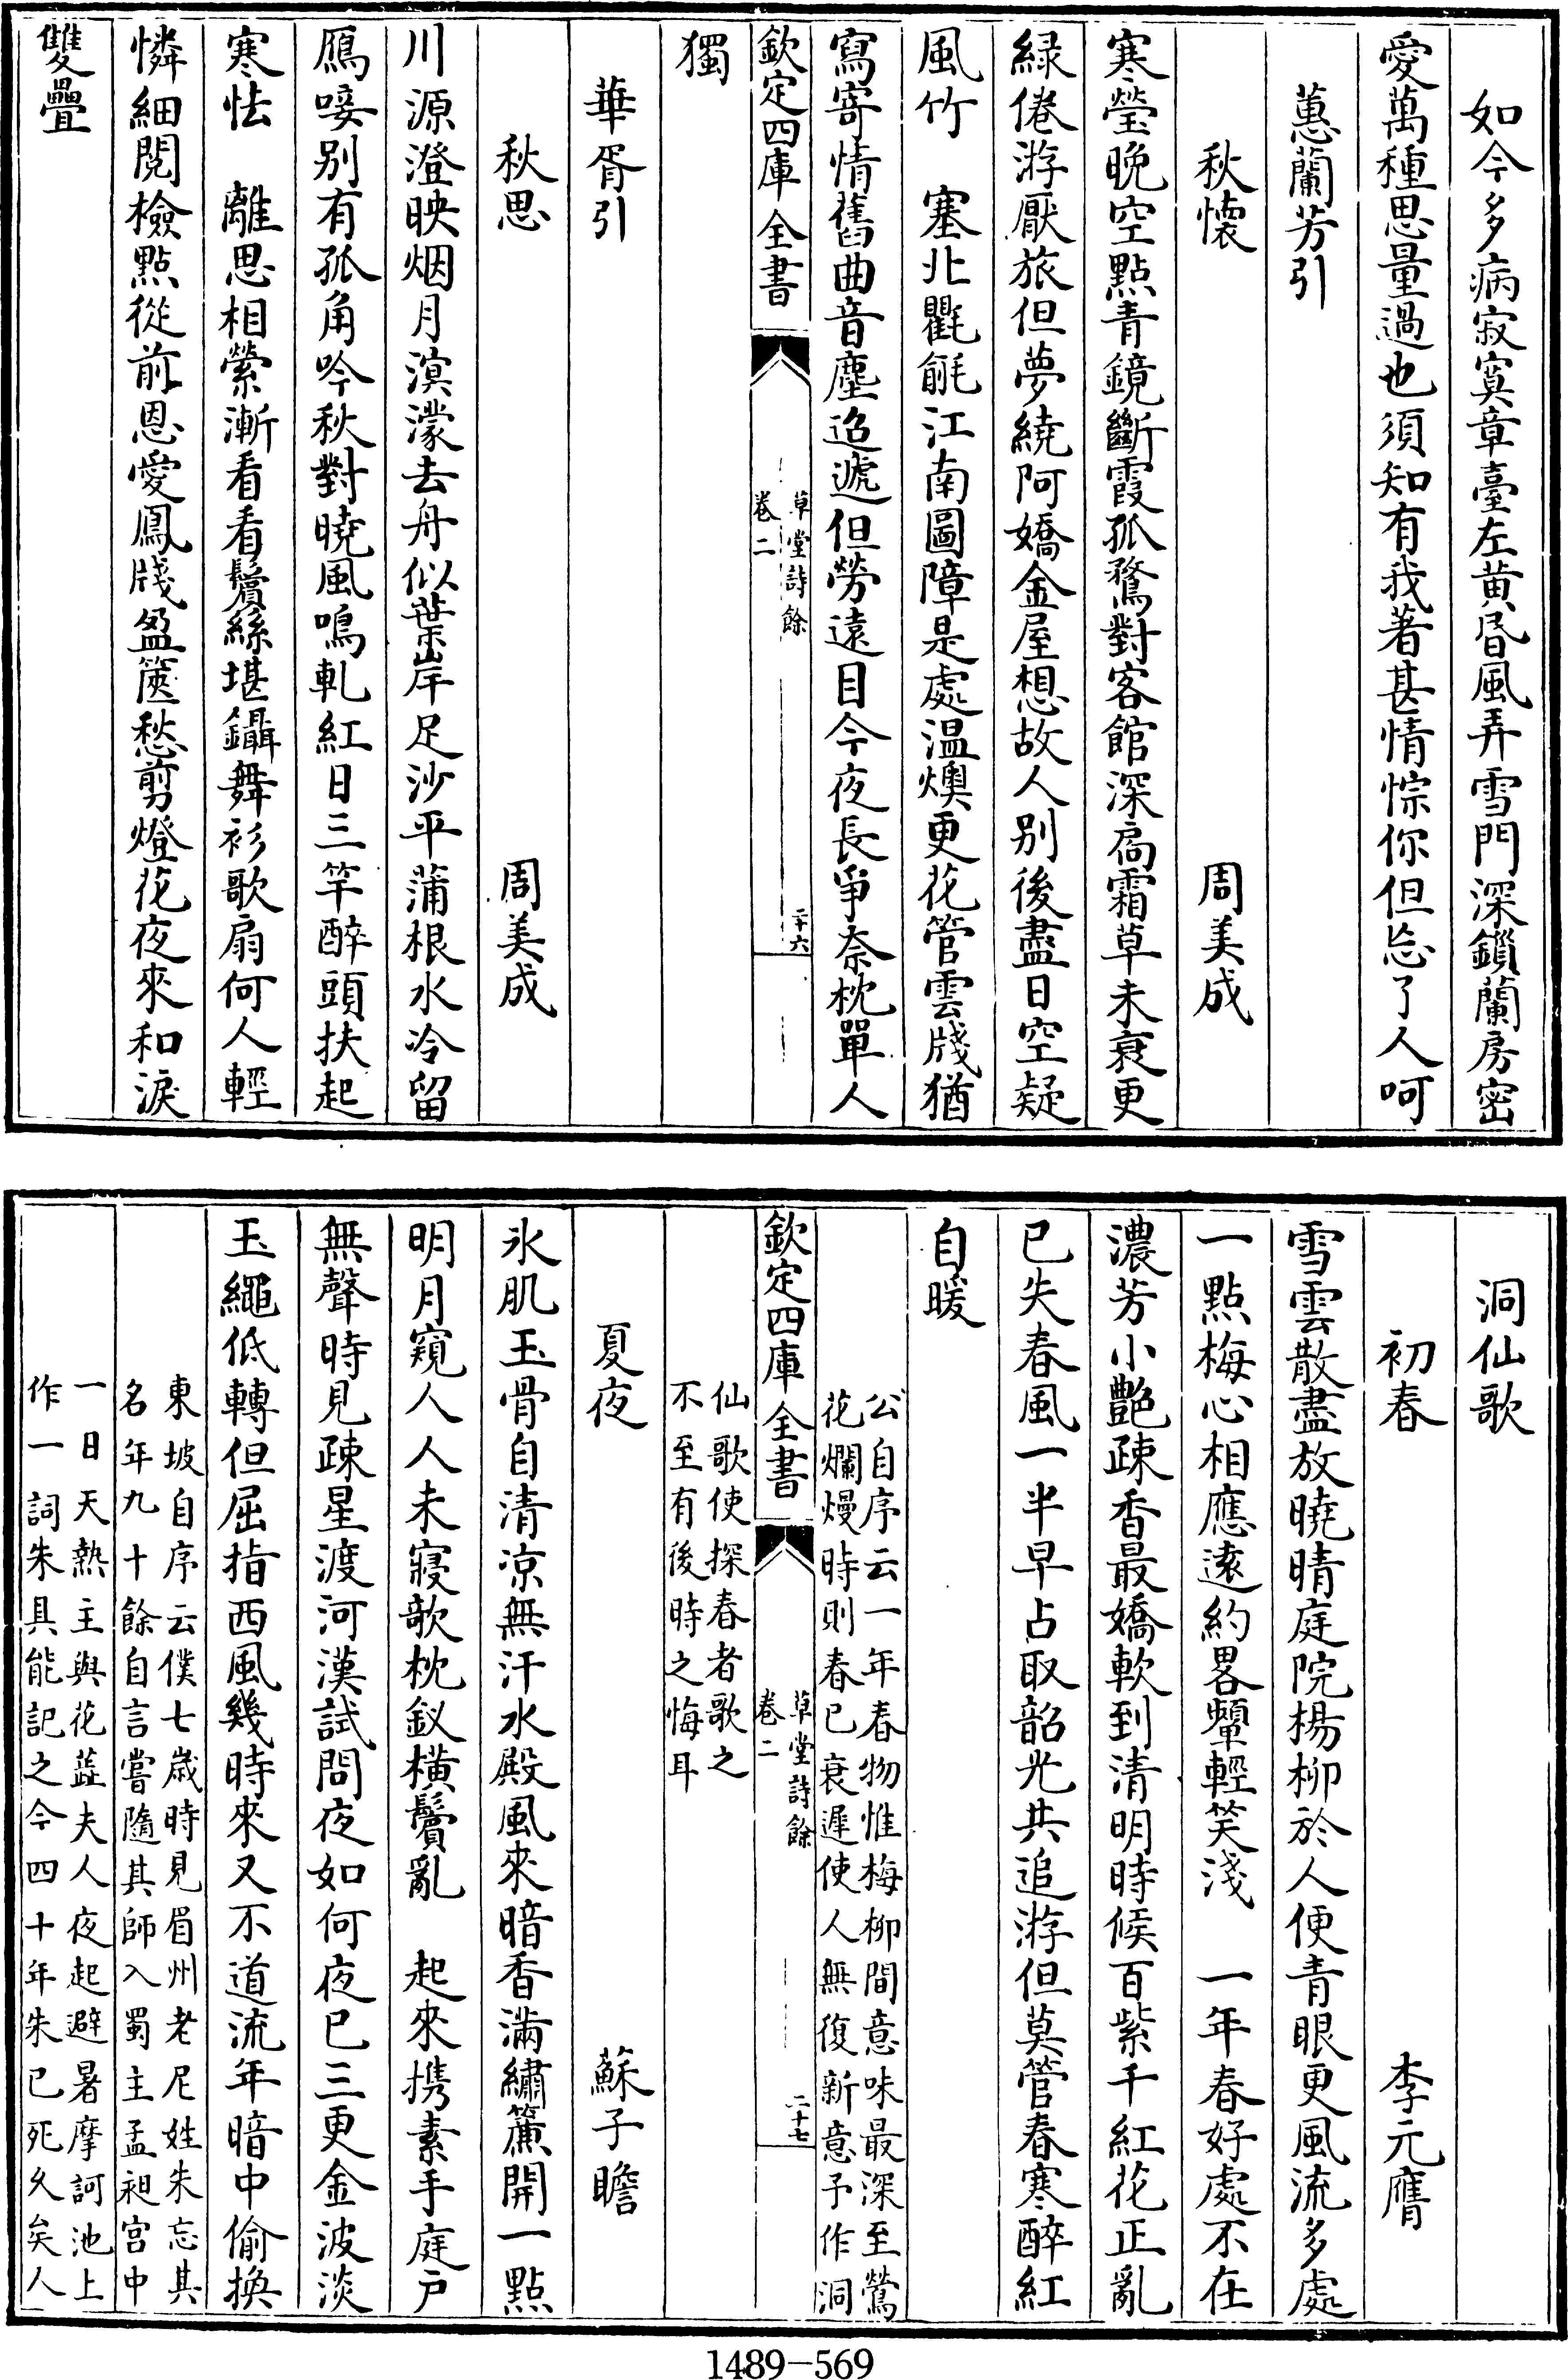 如今多病寂寞章臺左黄昏風弄雪門深鎖蘭房密
愛萬種思量過也須知有我著甚情悰你但忘了人呵
蕙蘭芳引
秋懐
周美成
寒瑩晚空點青鏡斷霞孤鶩對客館深扃霜草未衰更
緑倦游厭旅但夢繞阿嬌金屋想故人别後盡日空疑
風竹　塞北氍毹江南圖障是處温燠更花管雲牋猶
寫寄情舊曲音塵迢遞但勞遠目今夜長爭奈枕單人
欽定四庫全書
草堂詩餘
卷二
二十六
獨
華胥引
秋思
周美成
川源澄映烟月溟濛去舟似葉岸足沙平蒲根水冷留
鴈唼别有孤角吟秋對曉風鳴軋紅日三竿醉頭扶起
寒怯　離思相縈漸看看鬢絲堪鑷舞衫歌扇何人輕
憐細閲檢點從前恩愛鳳牋盈篋愁剪燈花夜來和淚
雙疊
洞仙歌
初春
李元膺
雪雲散盡放曉晴庭院楊柳於人便青眼更風流多處
一點梅心相應遠約畧顰輕笑淺　一年春好處不在
濃芳小艷疎香最嬌軟到清明時候百紫千紅花正亂
已失春風一半早占取韶光共追游但莫管春寒醉紅
自暖
公自序云一年春物惟梅柳間意味最深至鶯
花爛熳時則春已衰遲使人無復新意予作洞
欽定四庫全書
草堂詩餘
卷二
二十七
仙歌使探春者歌之
不至有後時之悔耳
夏夜
蘇子瞻
氷肌玉骨自清凉無汗水殿風來暗香滿繡簾開一點
明月窺人人未寢欹枕釵横鬢亂　起來携素手庭户
無聲時見疎星渡河漢試問夜如何夜已三更金波淡
玉繩低轉但屈指西風幾時來又不道流年暗中偷换
東坡自序云僕七歳時見眉州老尼姓朱忘其
名年九十餘自言嘗隨其師入蜀主孟昶宫中
一日天熱主與花蕋夫人夜起避暑摩訶池上
作一詞朱具能記之今四十年朱已死久矣人
1489-569